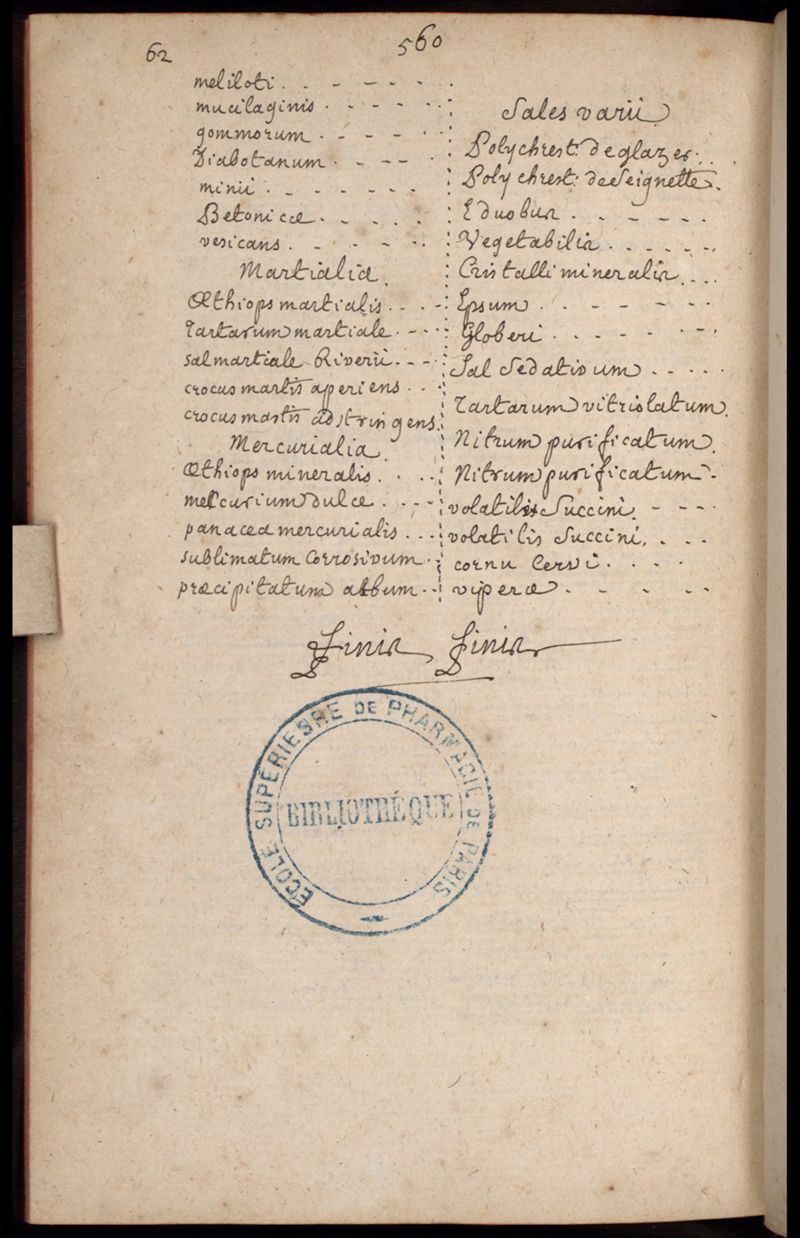 62
560
meliloti
mucilaginis
gommorum
Diabotanum
minii
Betonicæ
vesicans
Martialia
Œthiops martialis
Tartarum martiale
sal martiale Riverii
crocus martis aperiens
crocus martis adstringens
Mercurialia
Œthiops mineralis
mercurium dulce
panacea mercurialis
sublimatum Corrosivum
præcipitatum album
Sales varii
Polychrest: de glazer
Polychrest: de Seignette
E duobus
Vegetabilis
Cristalli mineralis
Epsum
Globeri
Sal Sedativum
Tartarum vitriolatum
Nitrum purificatum
Nitrum purificatum
volatilis Succini
volatilis Succini
cornu Cervi
viperæ
Finis Finis
ÉCOLE SUPÉRIESRE DE PHARMACIE DE PARIS
BIBLIOTHÉQUE